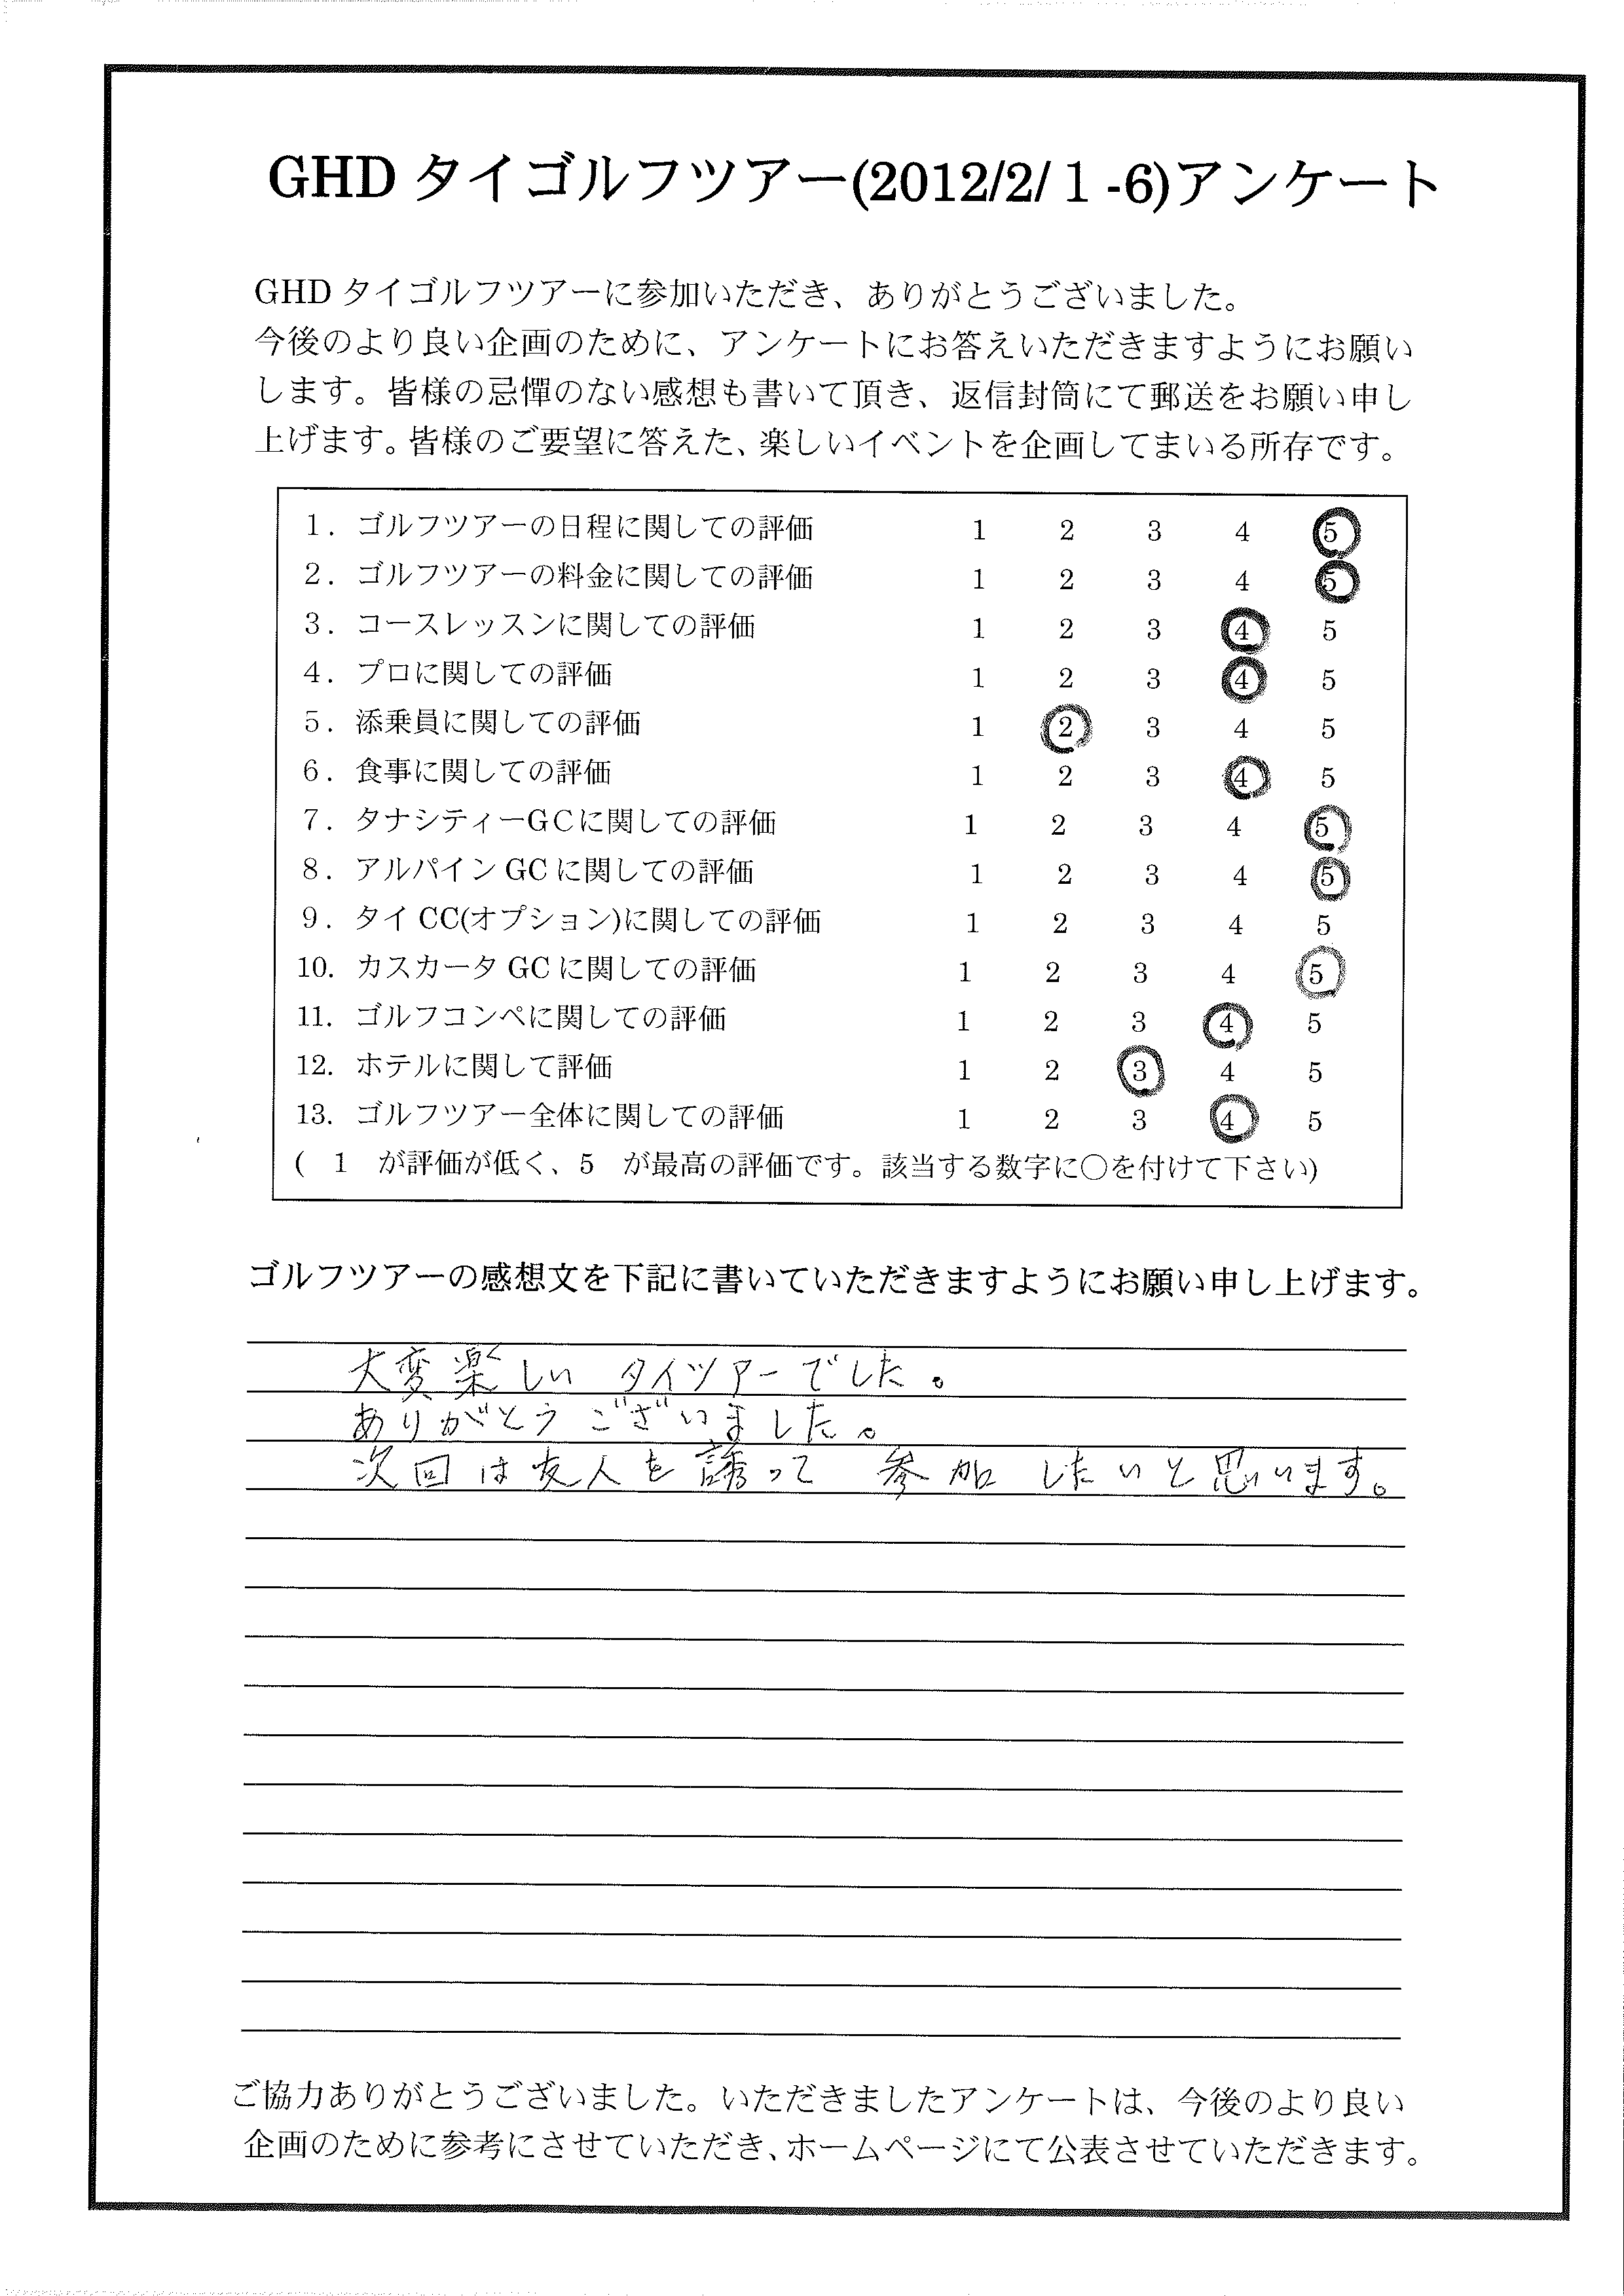 GHD タイゴルフツアー(2012/2/１-6)アンケート
GHD タイゴルフツアーに参加いただき、ありがとうございました。
今後のより良い企画のために、アンケートにお答えいただきますようにお願い
します。皆様の忌憚のない感想も書いて頂き、返信封筒にて郵送をお願い申し
上げます。皆様のご要望に答えた、楽しいイベントを企画してまいる所存です。
１．ゴルフツアーの日程に関しての評価 1 2 3 4 5
２．ゴルフツアーの料金に関しての評価 1 2 3 4 5
３．コースレッスンに関しての評価 1 2 3 4 5
４．プロに関しての評価 1 2 3 4 5
５．添乗員に関しての評価 1 2 3 4 5
６．食事に関しての評価 1 2 3 4 5
７．タナシティーGCに関しての評価 1 2 3 4 5
８．アルパイン GC に関しての評価 1 2 3 4 5
９．タイ CC(オプション)に関しての評価 1 2 3 4 5
10. カスカータ GC に関しての評価 1 2 3 4 5
11. ゴルフコンペに関しての評価 1 2 3 4 5
12. ホテルに関して評価 1 2 3 4 5
13. ゴルフツアー全体に関しての評価 1 2 3 4 5
( 1 が評価が低く、5 が最高の評価です。該当する数字に○を付けて下さい)
ゴルフツアーの感想文を下記に書いていただきますようにお願い申し上げます。
大変楽しい タイツアーでした。
ありがとうございました。
次回は友人を誘って 参加したいと思います。
ご協力ありがとうございました。いただきましたアンケートは、今後のより良い
企画のために参考にさせていただき、ホームページにて公表させていただきます。